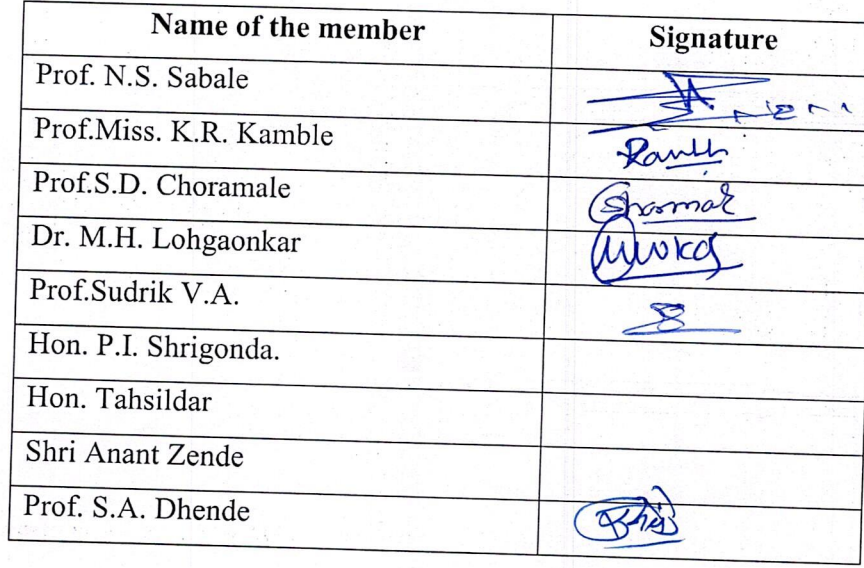 Name of the member Signature
Prof. N.S. Sabale
Prof.Miss. K.R. Kamble
Prof.S.D. Choramale
Dr. M.H. Lohgaonkar
Prof.Sudrik V.A.
Hon. P.I. Shrigonda.
Hon. Tahsildar
Shri Anant Zende
Prof. S.A. Dhende